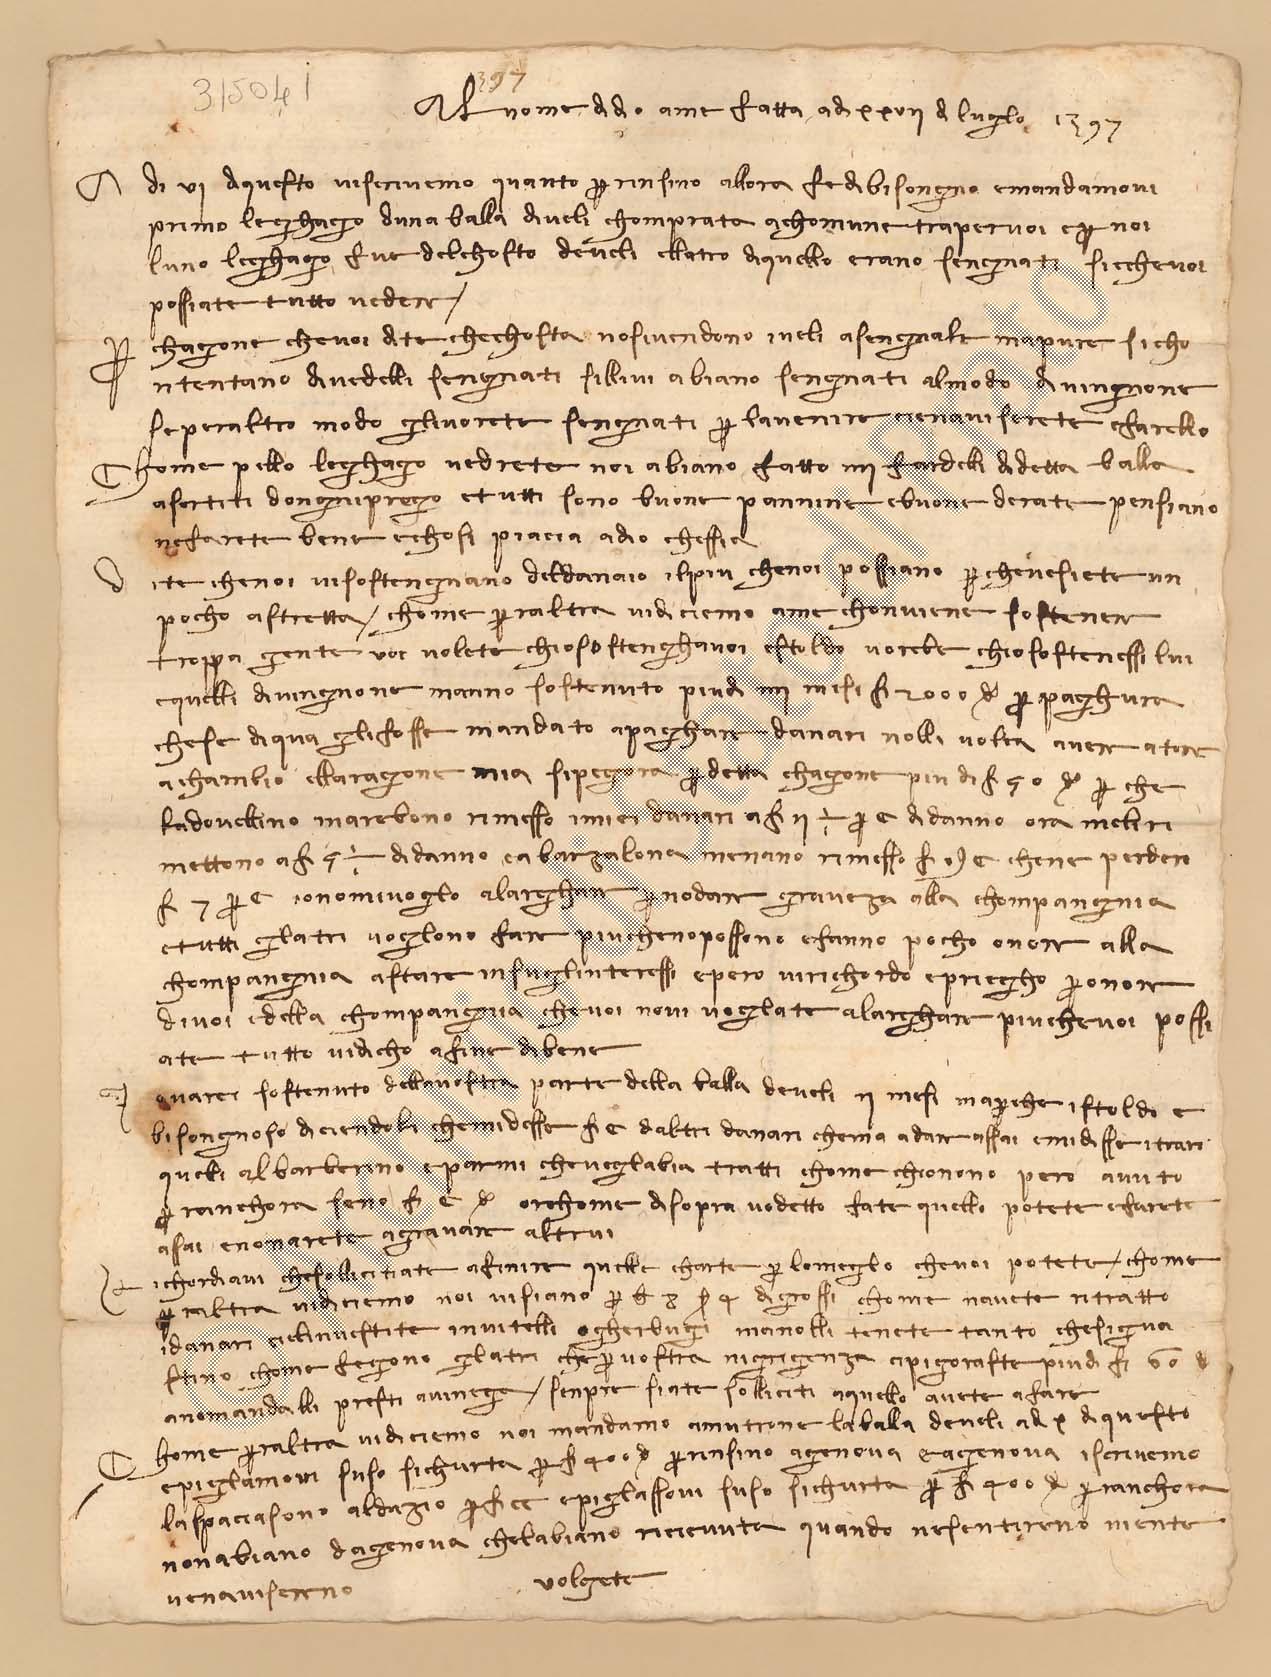 315041
397
Al nome di dio ame fatta adi xxvii di luglo 1397
A di vi di questo vi scrivemo quanto per insino allora fe di bisongno e mandamovi
primo leghagio duna balla di veli chomprata a chomune tra per voi e per noi
luno leghagio fue del chosto de veli ellatro di quello erano sengnati sicche voi
possiate tutto vedere /
Per chagione che voi dite che chosta no si vendono i veli a sengnalli ma pure si cho
ntentano di vedelli sengnati silli vi abiano sengnati al modo di vingnone
se per altro modo gli vorete sengnati per lavenire cie naviserete e farello
Chome pello leghagio vedrete noi abiano fatto iiii fardelli di detta balla
asortiti dongni pregio e tutti sono buone pannine e buone derate pensiano
ne farete bene e chosi piacia a dio che ssia
Dite che noi vi sostengnano del danaio il piu che noi possiano perche ve siete un
pocho a stretta / chome per altra vi diciemo a me chonviene sostenere
troppa gente voi volete chio sostengha voi e stoldo vorebe chio sostenessi lui
e quelli di vingnone manno sostenuto piu di iiii mesi f 2000 d per paghura
che se di qua gli fosse mandato a paghare danari nolli volea avere a torre
a chambio ella ragione mia si pegiora per detta chagione piu di f 50 d per che
ladovellino marebono rimesso i miei danari a f ii ½ per c di danno ora meli ri
mettono a f 5 ½ di danno e a barzalona menano rimesso f c che ne perdero
f 7 per c io no mi voglo alarghare per no dare graveza alla chompangnia
e tutti glatri voglono fare piu che no possono e fanno pocho onore alla
chompangnia a stare in su glinteressi e pero vi richordo e priegho per onore
di voi e della chompangnia che voi no vi voglate alarghare piu che voi possi
ate tutto vi dicho a fine di bene
Io varei sostenuto della vostra parte della balla de veli ii mesi ma perche istoldo e
bisongnoso diciendoli che mi desse f c daltri danari che ma a dare assai e mi disse i trarei
quelli al barberino e parmi che veglabia tratti chome chio nono pero avuto
per ranchora seno f c d or chome di sopra vo detto fate quello potete e farete
assai e no narete a gravare altrui
Richordiavi che sollicitiate a finire quelle charte per lo meglo che voi potete / chome
per altra vi diciemo noi vi siano per £ 8 s 4 di grossi chome navete ritratto
i danari cieli investite in vitelli o gherbugi ma nolli tenete tanto che si gua
stino chome fegiono glatri che per vostra nigrigenza ci pigioraste piu di f 60 d
a no mandalli presti a vinega / senpre siate solliciti a quello avete a fare
Chome per altra vi diciemo noi mandamo a mutrone la balla de veli adi x di questo
e piglamovi suso sichurta per f 400 d per insino a genova e a genova iscrivemo
la spaciasono al dazio per f cc e piglassovi suso sichurta per f 400 d per ranchora
non abiano da genova che labiano ricievuta quando ne sentireno niente
ve naviserenno
volgete